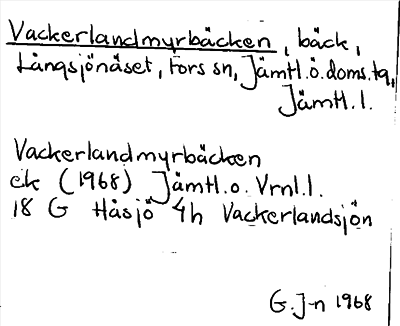 Vackerlandmyrbäcken, bäck,
Långsjönäset, Fors sn, Jämtl.ö.doms.tg,
Jämtl.l.
Vackerlandmyrbäcken
ek (1968) Jämtl.o. Vrnl.l.
18 G Håsjö 4h Vackerlandsjön
G.J-n 1968